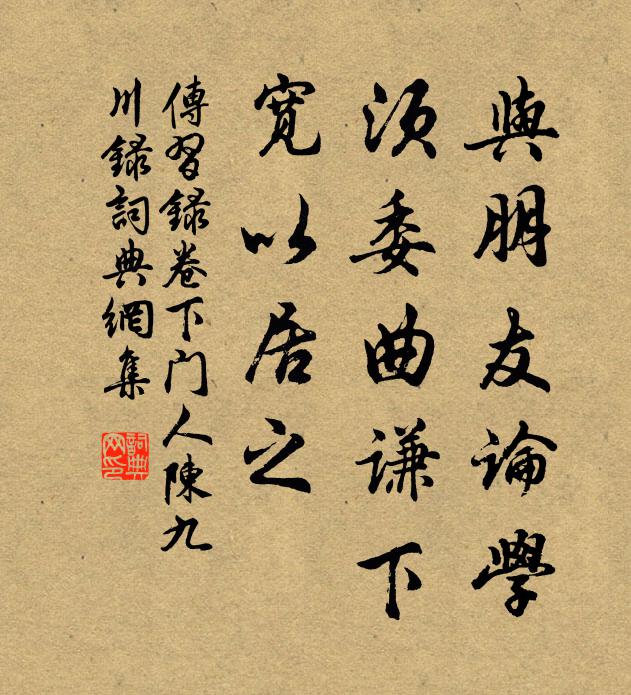 與朋友論學
須委曲謙下
寬以居之
傳習錄卷下門人陳九
川錄詞典網集
詞典
网印